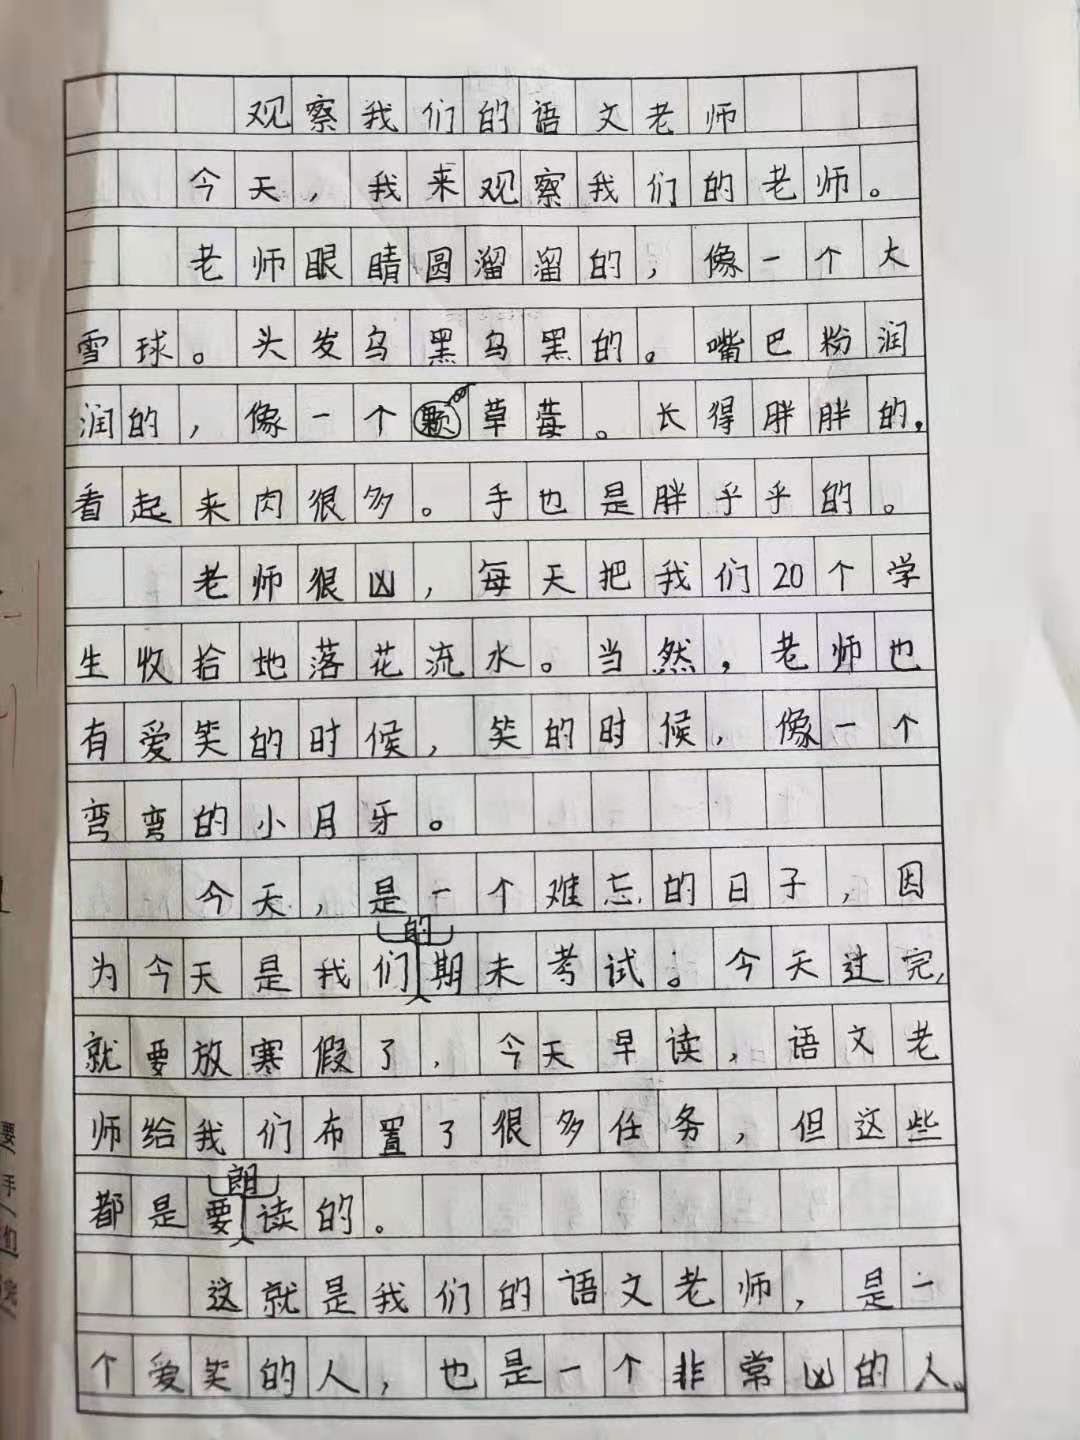 观察我们的语文老师
今天，我来观察我们的老师。
老师眼睛圆溜溜的，像一个大
雪球。头发乌黑乌黑的。嘴巴粉润
润的，像一个颗草莓。长得胖胖的，
看起来肉很多。手也是胖乎乎的。
老师很凶，每天把我们20个学
生收拾地落花流水。当然，老师也
有爱笑的时候，笑的时候，像一个
弯弯的小月牙。
今天，是一个难忘的日子，因
为今天是我们的期末考试。今天过完，
就要放寒假了，今天早读，语文老
师给我们布置了很多任务，但这些
都是要朗读的。
这就是我们的语文老师，是一
个爱笑的人，也是一个非常凶的人。
要
手
们